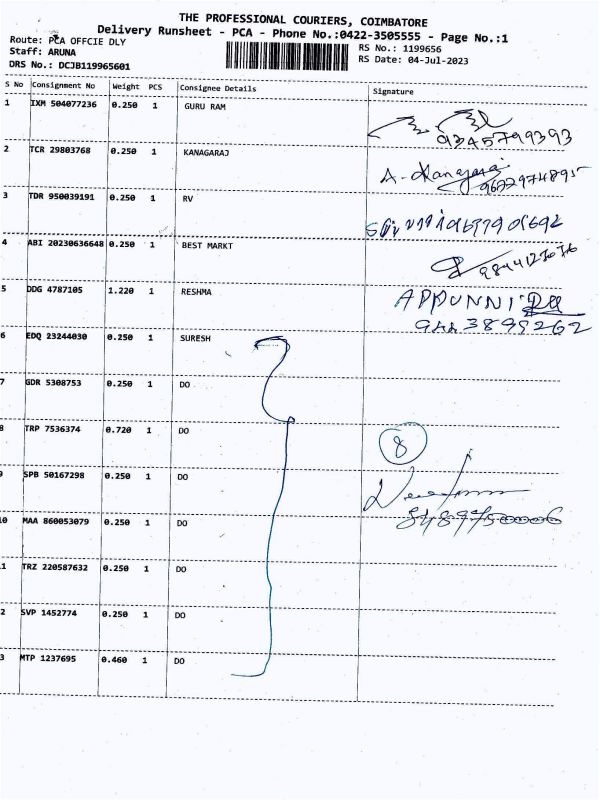 THE PROFESSIONAL COURIERS, COIMBATORE
Delivery Runsheet - PCA - Phone No.:0422-3505555 - Page No.:1
Route: PCA OFFCIE DLY
RS No.: 1199656
Staff: ARUNA
RS Date: 04-Jul-2023
DRS No.: DCJB119965601
S No Consignment No Weight PCS Consignee Details Signature
1 IXM 504077236 0.250 1 GURU RAM
9345799393
2 TCR 29803768 0.250 1 KANAGARAJ
A. Kanagaraj
9622974895
3 TDR 950039191 0.250 1 RV
4 ABI 20230636648 0.250 1 BEST MARKT
5 DDG 4787105 1.220 1 RESHMA
APPUNNI
6 EDQ 23244030 0.250 1 SURESH
7 GDR 5308753 0.250 1 DO
8 TRP 7536374 0.720 1 DO
8
9 SPB 50167298 0.250 1 DO
10 MAA 860053079 0.250 1 DO
1 TRZ 220587632 0.250 1 DO
2 SVP 1452774 0.250 1 DO
3 MTP 1237695 0.460 1 DO